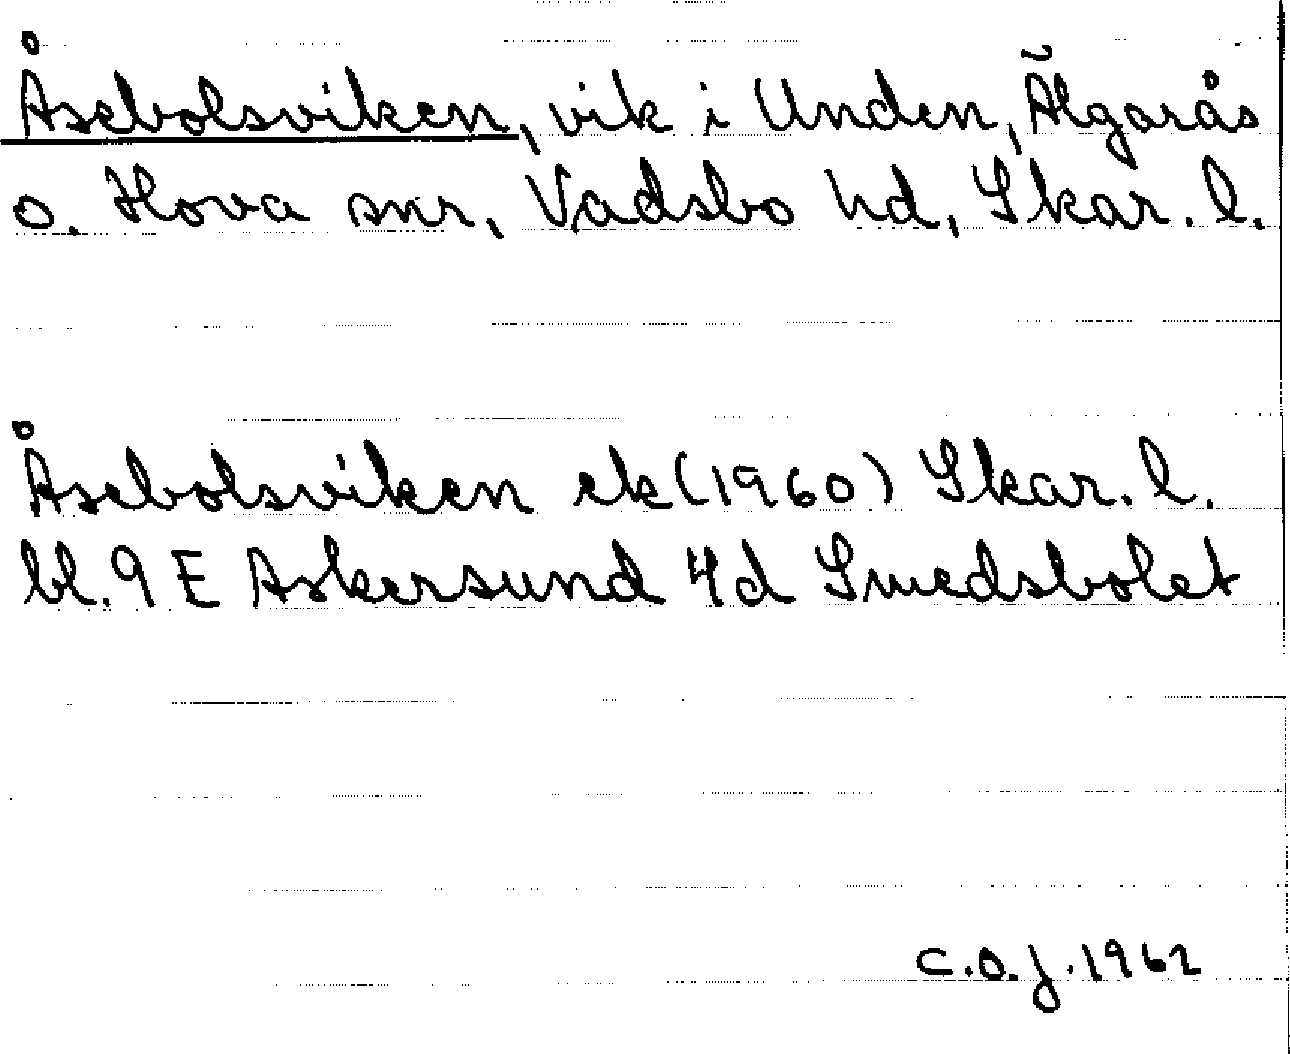 Åsebolsviken, vik i Unden, Älgarås
o. Hova snr, Vadsbo hd, Skar. l.
Åsebolsviken ek (1960) Skar. l.
bl. 9 E Askersund 4d Smedsbolet
C.O.J. 1962